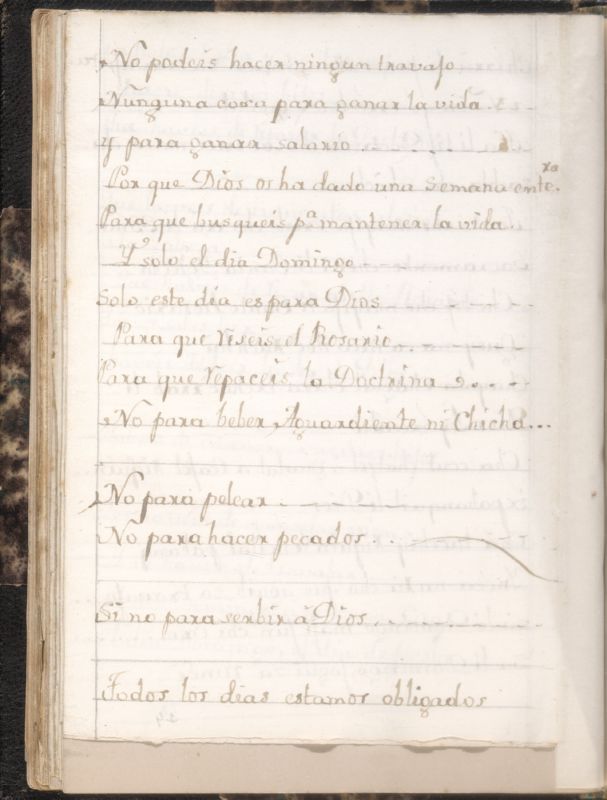 No podeis hacer ningun travajo
Ninguna cosa para ganar la vida.
y para ganar salario . . . . .
Por que Dios os ha dado una semana ente.ra
Para que busqueis p.a mantener la vida.
Y solo el dia Domingo
Solo este dia es para Dios
Para que reseis el Rosario . . .
Para que repaceis la Doctrina . . . .
No para beber Aguardiente ni Chicha...
No para pelear . . . .
No para hacer pecados . . .
Si no para serbir â Dios . . . . .
Todos los dias estamos obligados